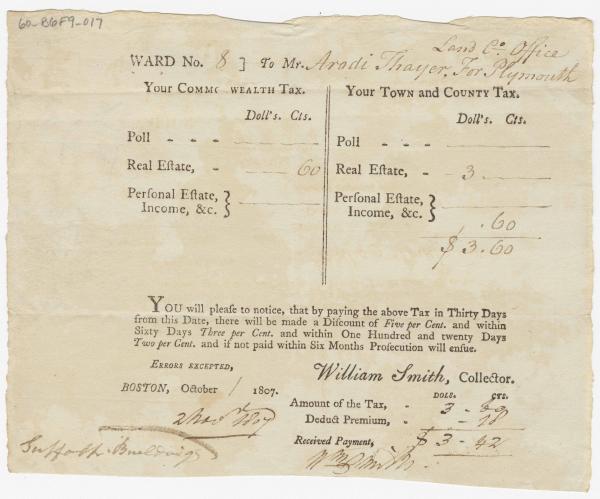 60-B6F9-017
Land Co. Office
WARD No. 8 } To Mr. Aradi Thayer. For Plymouth
Your COMMO WEALTH TAX.
Doll's. Cts.
Poll - - -
Real Eſtate, - 60
Perſonal Eſtate, }
Income, &c.
Your TOWN and COUNTY TAX.
Doll's. Cts.
Poll - - -
Real Eſtate - - 3
Perſonal Eſtate, }
Income, &c.
.60
$ 3.60
YOU will pleaſe to notice, that by paying the above Tax in Thirty Days
from this Date, there will be made a Diſcount of Five per Cent. and within
Sixty Days Three per Cent. and within One Hundred and twenty Days
Two per Cent. and if not paid within Six Months Proſecution will enſue.
ERRORS EXCEPTED,
BOSTON, October 1 1807.
2 Nov. 1807
William Smith, Collector.
DOLS. CTS.
Amount of the Tax, - 3 - 60
Deduct Premium, - - 18
Received Payment, $ 3 - 42
Wm Smith.
Suffolk Buildings